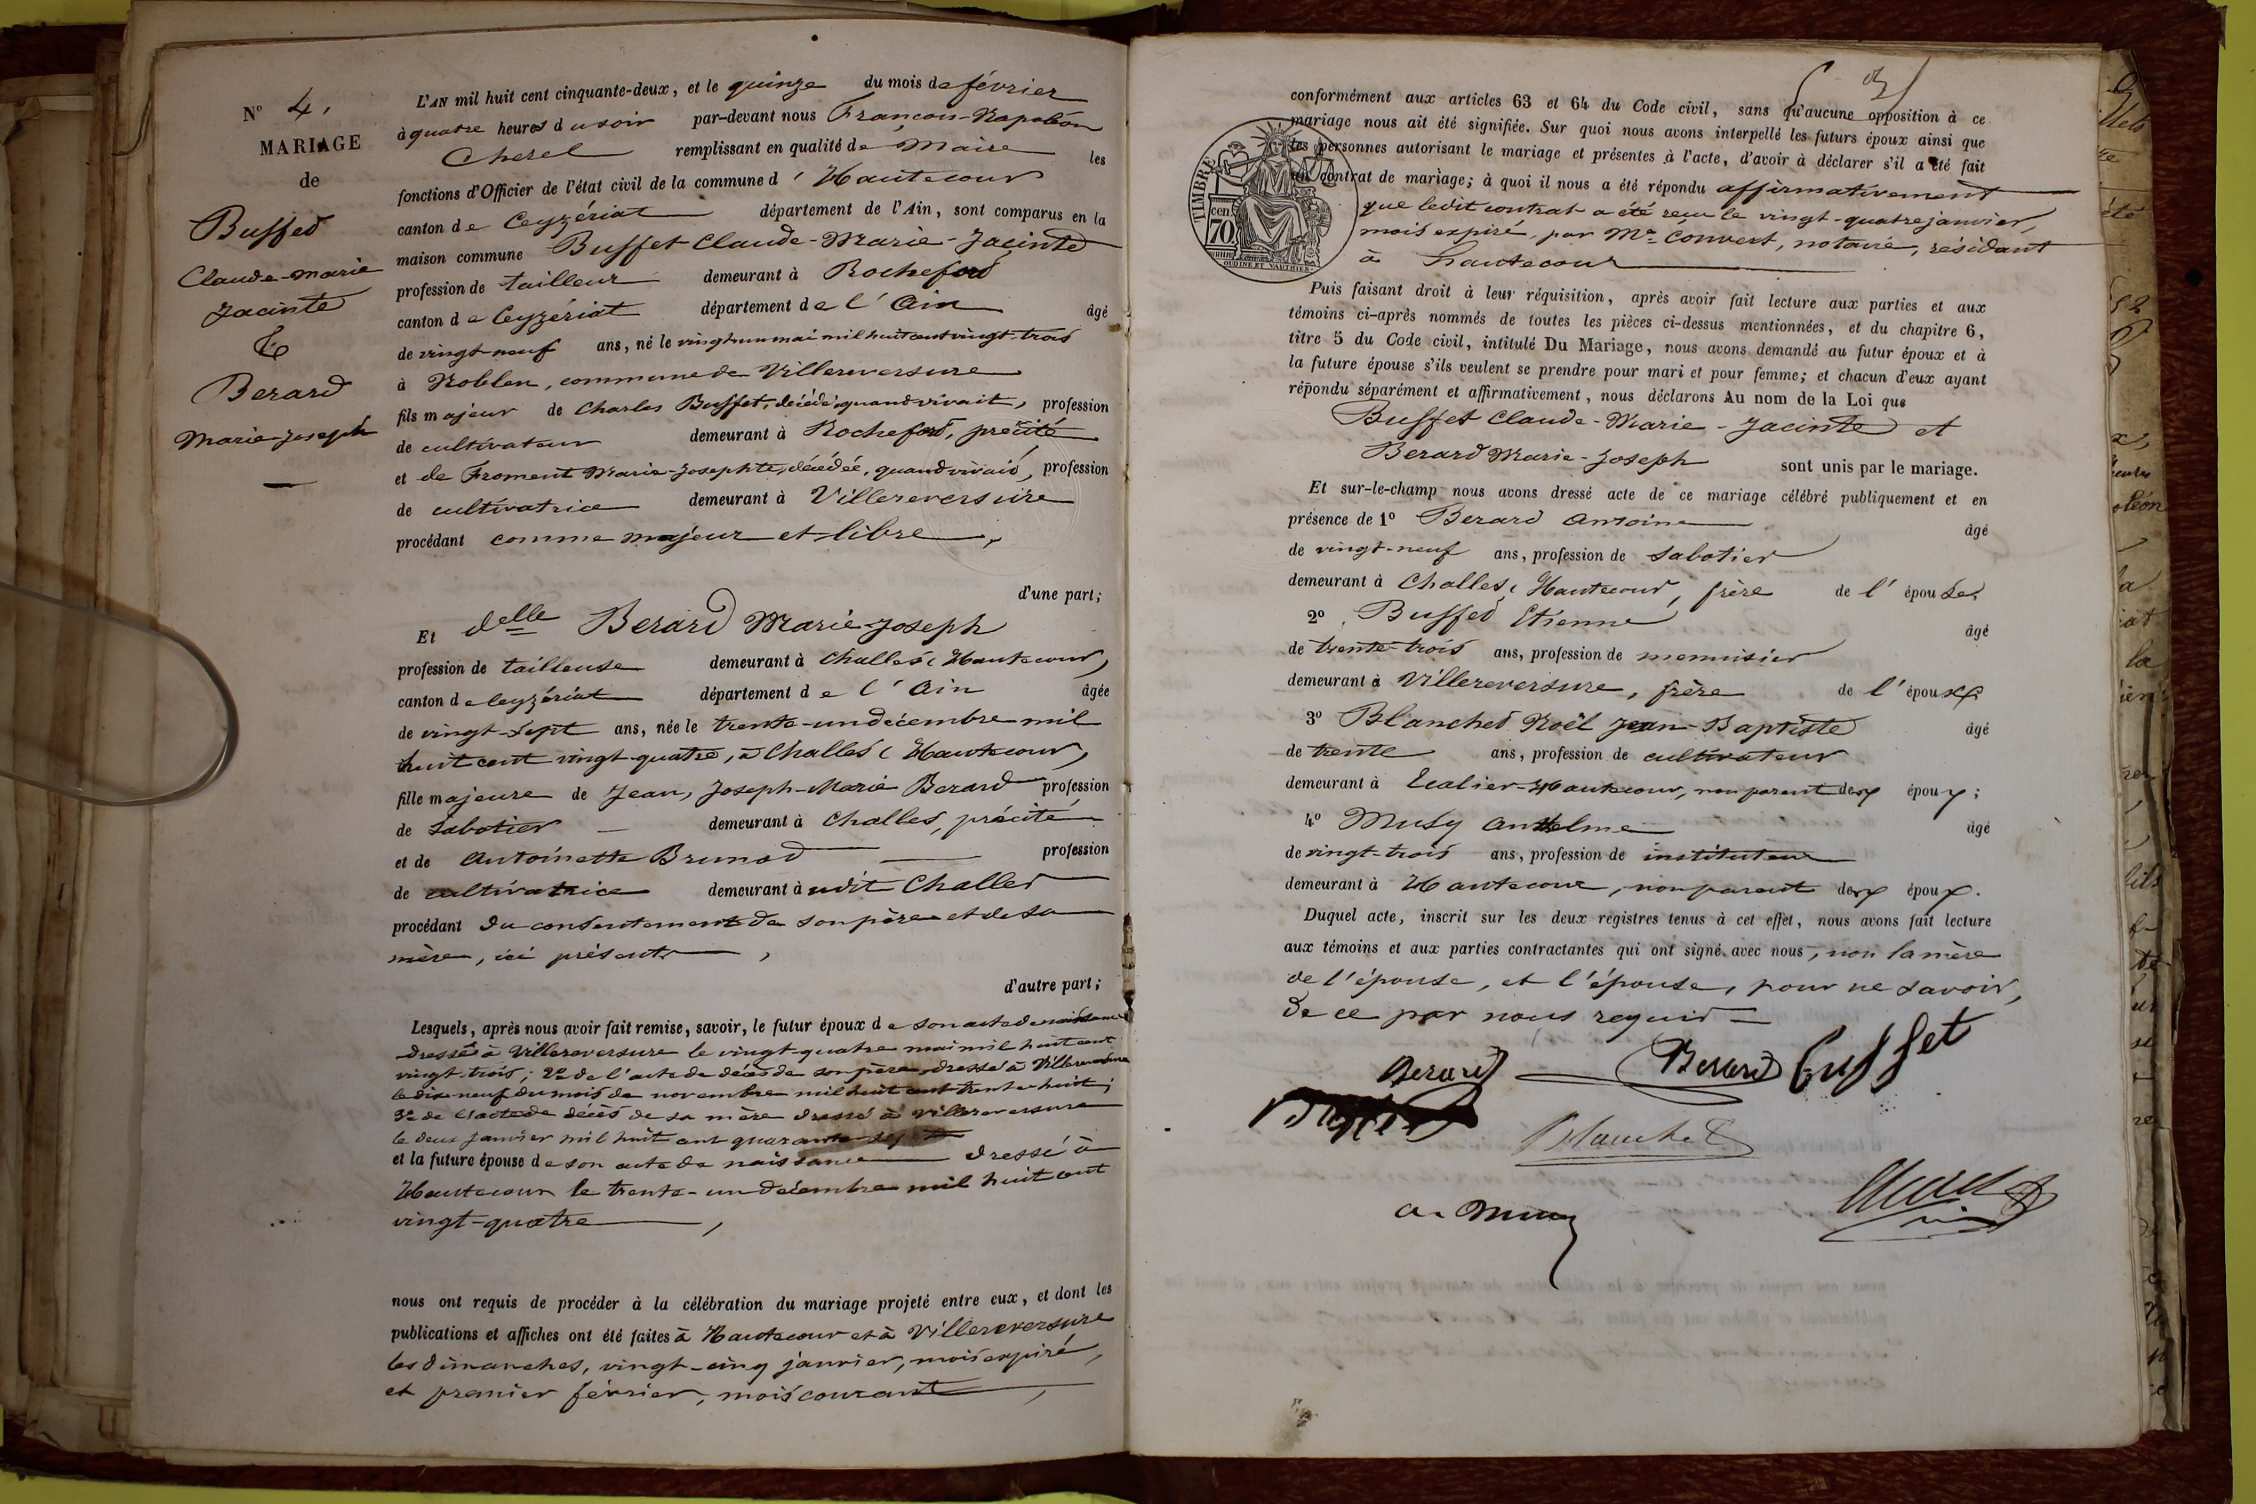 N° 4.
MARIAGE
de
Buffet
Claude-Marie
Jacinte
&
Berard
Marie-Joseph
L'AN mil huit cent cinquante-deux, et le quinze du mois de février
à quatre heures du soir par-devant nous François-Napoléon
Cherel remplissant en qualité de Maire les
fonctions d'Officier de l'état civil de la commune d'Hautecour
canton de Ceyzériat département de l'Ain, sont comparus en la
maison commune Buffet Claude-Marie-Jacinte
profession de tailleur demeurant à Rochefort
canton de Ceyzériat département de l'Ain âgé
de vingt-neuf ans, né le vingt un mai mil huit cent vingt-trois
à Noblen, commune de Villereversure
fils majeur de Charles Buffet, décédé, quand vivait, profession
de cultivateur demeurant à Rochefort, précité
et de Froment Marie-Josephte, décédée, quand vivait, profession
de cultivatrice demeurant à Villereversure
procédant comme majeur et libre,
d'une part;
Et delle Berard Marie-Joseph
profession de tailleuse demeurant à Challes (Hautecour)
canton de Ceyzériat département de l'Ain âgée
de vingt-sept ans, née le trente-un décembre mil
huit cent vingt-quatre, à Challes (Hautecour)
fille majeure de Jean, Joseph-Marie Berard profession
de sabotier demeurant à Challes, précité
et de Antoinette Brunod profession
de cultivatrice demeurant à udit Challes
procédant du consentement de son père et de sa
mère, ici présents,
d'autre part;
Lesquels, après nous avoir fait remise, savoir, le futur époux de son acte de naissance
dressé à Villereversure le vingt-quatre mai mil huit cent
vingt-trois; 2° de l'acte de décès de son père dressé à Villereversure
le dix-neuf du mois de novembre mil huit cent trente-huit;
3° de l'acte de décès de sa mère dressé à Villereversure
le deux janvier mil huit cent quarante-sept
et la future épouse de son acte de naissance dressé à
Hautecour le trente-un décembre mil huit cent
vingt-quatre,
nous ont requis de procéder à la célébration du mariage projeté entre eux, et dont les
publications et affiches ont été faites à Hautecour et à Villereversure
les dimanches, vingt-cinq janvier, mois expiré,
et premier février, mois courant,
conformément aux articles 63 et 64 du Code civil, sans qu'aucune opposition à ce
mariage nous ait été signifiée. Sur quoi nous avons interpellé les futurs époux ainsi que
les personnes autorisant le mariage et présentes à l'acte, d'avoir à déclarer s'il a été fait
un contrat de mariage; à quoi il nous a été répondu affirmativement
que ledit contrat a été reçu le vingt-quatre janvier,
mois expiré, par Me Convert, notaire, résidant
à Hautecour
TIMBRE
cen.
70
OUDINE ET VAUTHIER
Puis faisant droit à leur réquisition, après avoir fait lecture aux parties et aux
témoins ci-après nommés de toutes les pièces ci-dessus mentionnées, et du chapitre 6,
titre 5 du Code civil, intitulé Du Mariage, nous avons demandé au futur époux et à
la future épouse s'ils veulent se prendre pour mari et pour femme; et chacun d'eux ayant
répondu séparément et affirmativement, nous déclarons Au nom de la Loi que
Buffet Claude-Marie-Jacinte et
Berard Marie-Joseph sont unis par le mariage.
Et sur-le-champ nous avons dressé acte de ce mariage célébré publiquement et en
présence de 1° Berard Antoine âgé
de vingt-neuf ans, profession de sabotier
demeurant à Challes, Hautecour, frère de l'épouse,
2° Buffet Etienne âgé
de trente-trois ans, profession de menuisier
demeurant à Villereversure, frère de l'époux
3° Blanchet Noël Jean-Baptiste âgé
de trente ans, profession de cultivateur
demeurant à Hautecour, non parent des époux;
4° Musy Anthelme âgé
de vingt-trois ans, profession de instituteur
demeurant à Hautecour, non parent des époux.
Duquel acte, inscrit sur les deux registres tenus à cet effet, nous avons fait lecture
aux témoins et aux parties contractantes qui ont signé avec nous, non la mère
de l'épouse, et l'épouse, pour ne savoir,
de ce par nous requis
Berard Berard Buffet
Blanchet
A. Musy